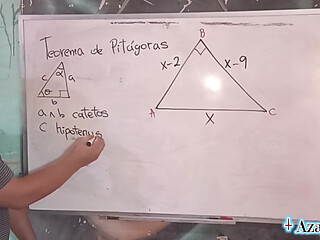 Teorema de Pitágoras
c α a
θ
b
a ∧ b catetos
C hipotenus
B
x-2 x-9
A C
x
+ Aza